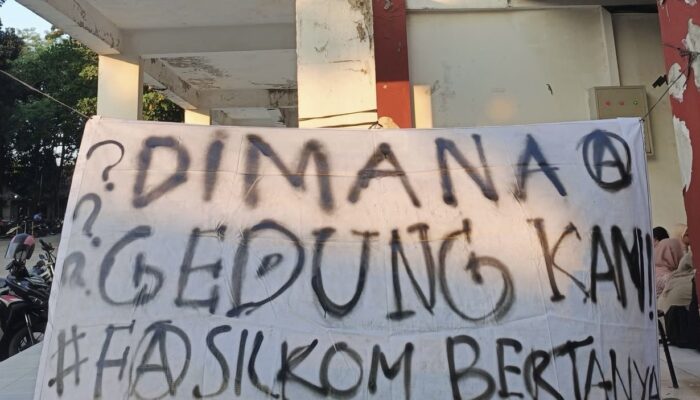 ? DIMANA Ⓐ
? GEDUNG KAMI!
? #FⒶSILKOM BERTANYA